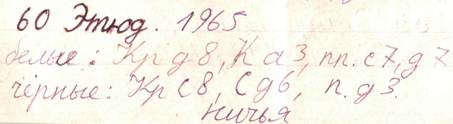 60 Этюд. 1965
белые: Кр д8, К а3, пп. с7, д7
чёрные: Кр с8, С д6, п. д3.
ничья